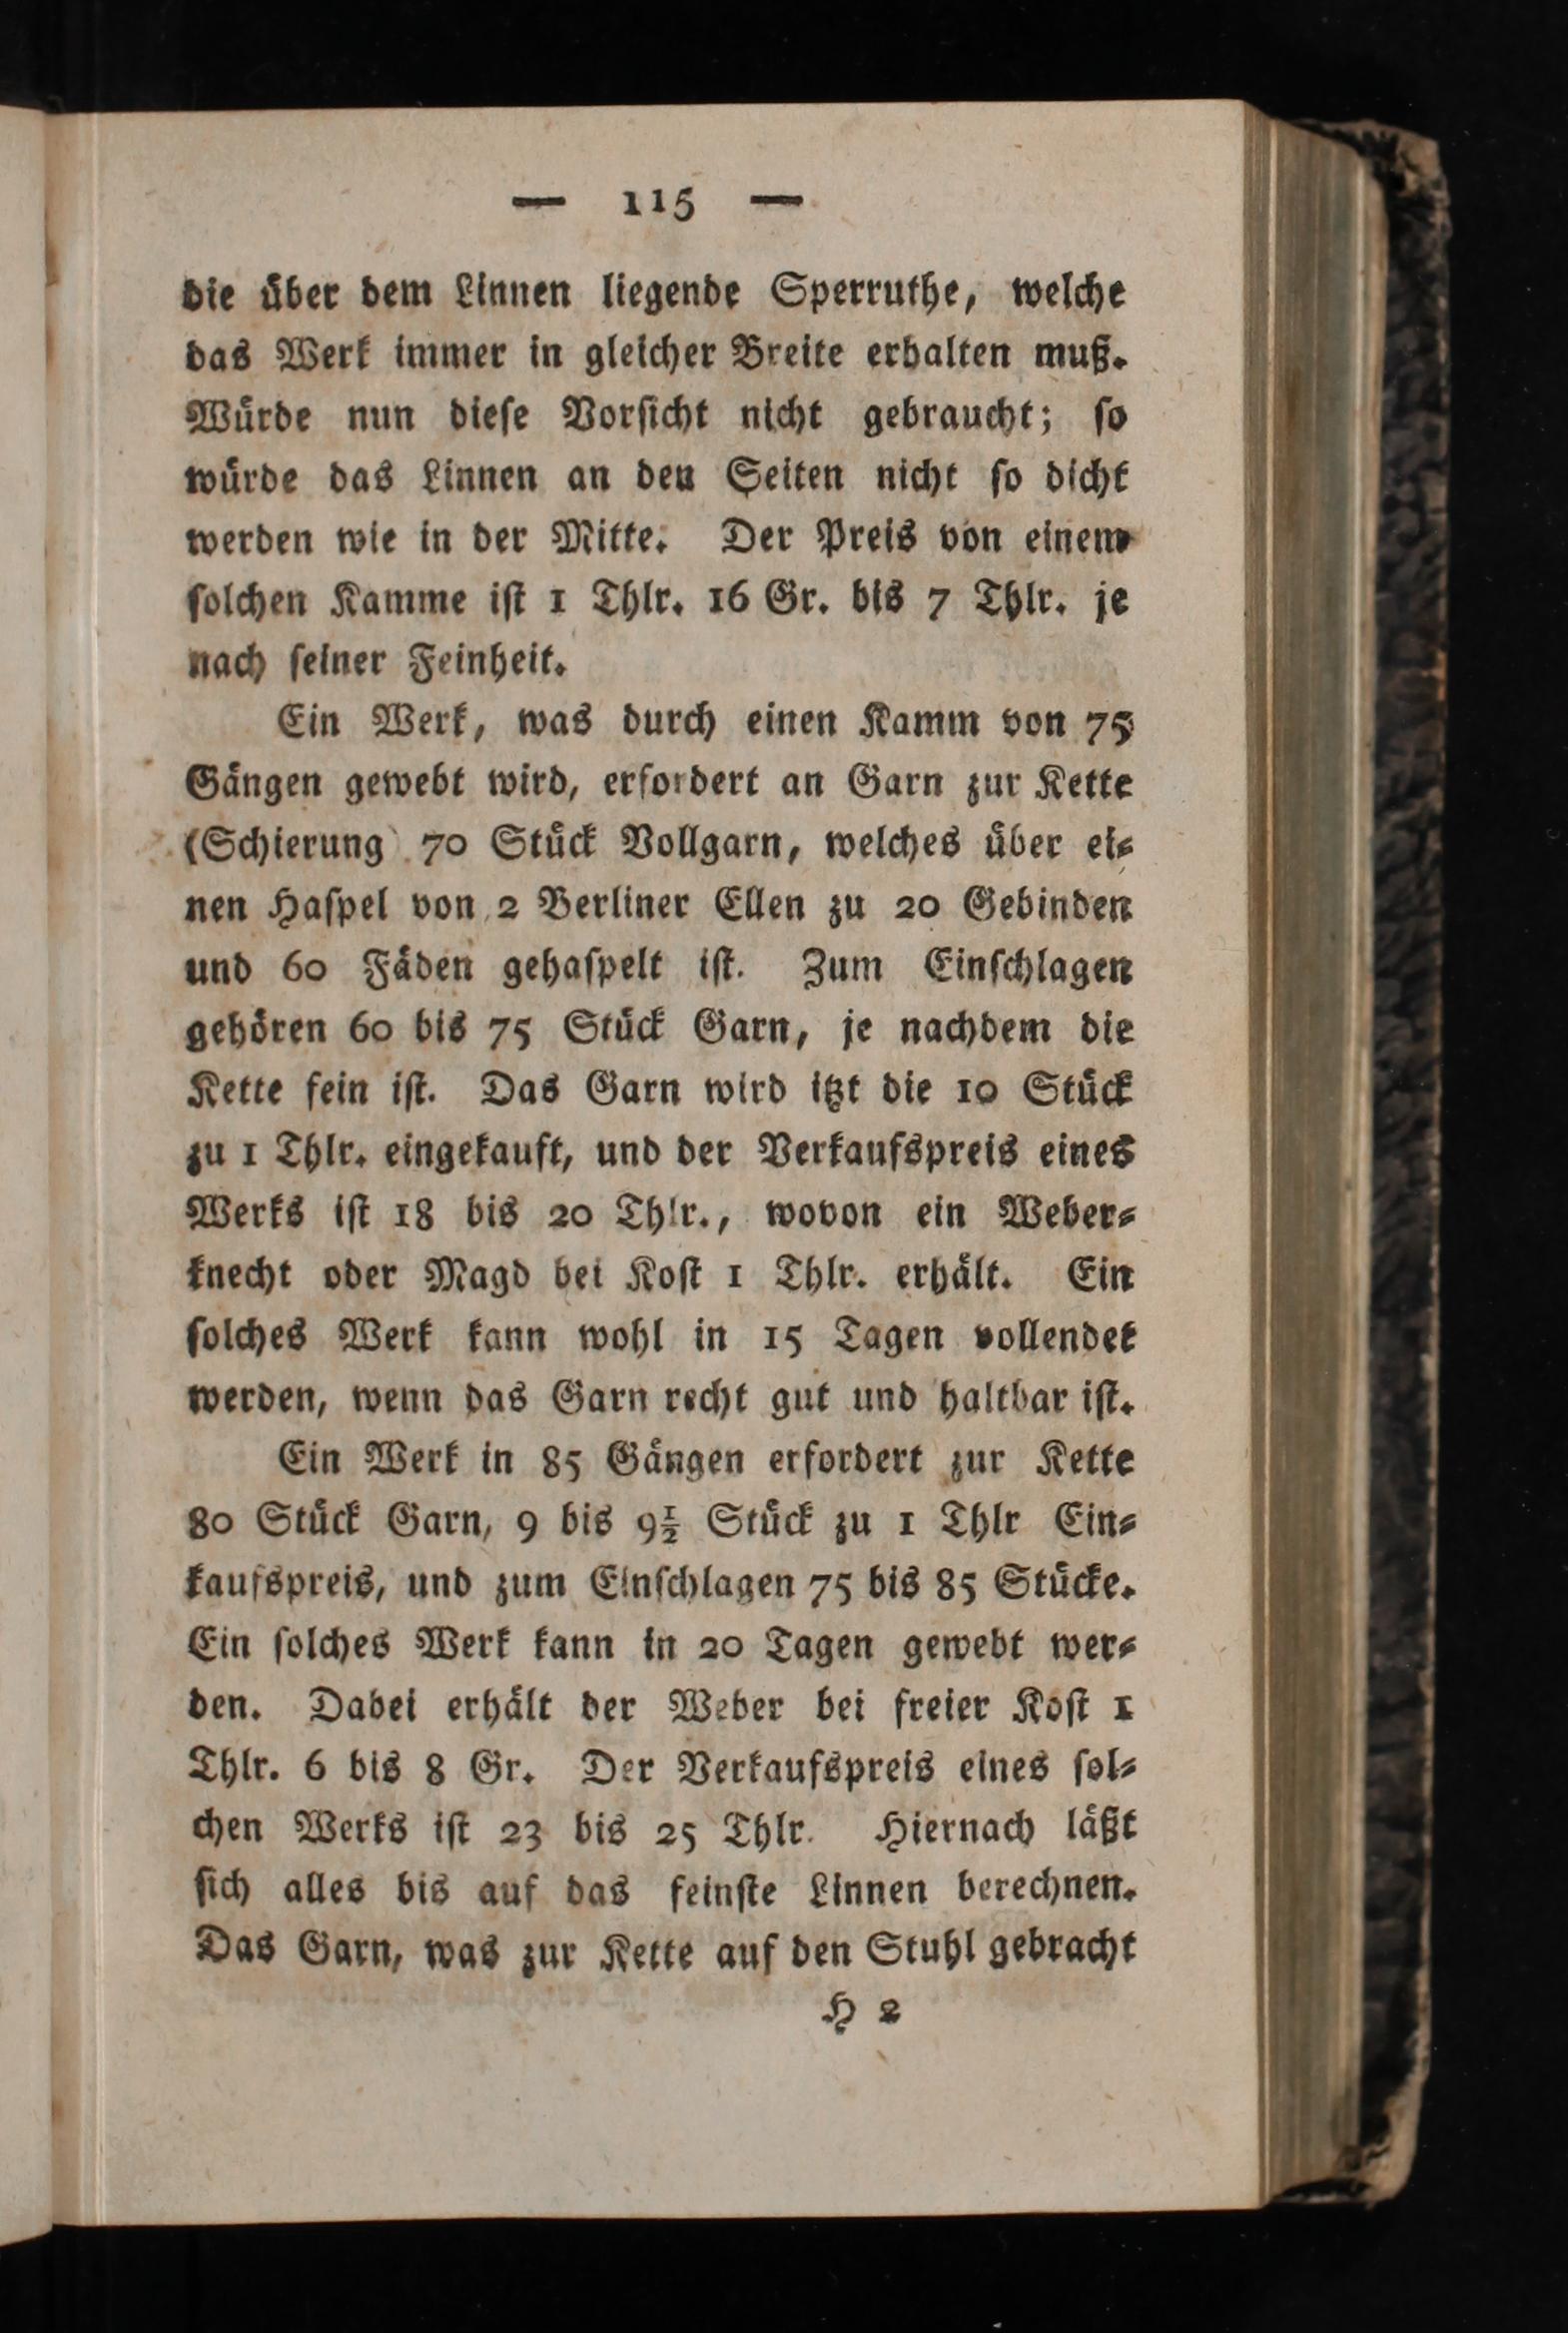 — 115 —
die über dem Linnen liegende Sperruthe, welche
das Werk immer in gleicher Breite erhalten muß.
Würde nun dieſe Vorſicht nicht gebraucht; ſo
würde das Linnen an den Seiten nicht ſo dicht
werden wie in der Mitte. Der Preis von einem
ſolchen Kamme iſt 1 Thlr. 16 Gr. bis 7 Thlr. je
nach ſeiner Feinheit.
Ein Werk, was durch einen Kamm von 75
Gängen gewebt wird, erfordert an Garn zur Kette
(Schierung) 70 Stück Vollgarn, welches über ei⸗
nen Haſpel von 2 Berliner Ellen zu 20 Gebinden
und 60 Fäden gehaſpelt iſt. Zum Einſchlagen
gehören 60 bis 75 Stück Garn, je nachdem die
Kette fein iſt. Das Garn wird itzt die 10 Stück
zu 1 Thlr. eingekauft, und der Verkaufspreis eines
Werks iſt 18 bis 20 Thlr., wovon ein Weber⸗
knecht oder Magd bei Koſt 1 Thlr. erhält. Ein
ſolches Werk kann wohl in 15 Tagen vollendet
werden, wenn das Garn recht gut und haltbar iſt.
Ein Werk in 85 Gängen erfordert zur Kette
80 Stück Garn, 9 bis 9½ Stück zu 1 Thlr Ein⸗
kaufspreis, und zum Einſchlagen 75 bis 85 Stücke.
Ein ſolches Werk kann in 20 Tagen gewebt wer⸗
den. Dabei erhält der Weber bei freier Koſt 1
Thlr. 6 bis 8 Gr. Der Verkaufspreis eines ſol⸗
chen Werks iſt 23 bis 25 Thlr. Hiernach läßt
ſich alles bis auf das feinſte Linnen berechnen.
Das Garn, was zur Kette auf den Stuhl gebracht
H 2